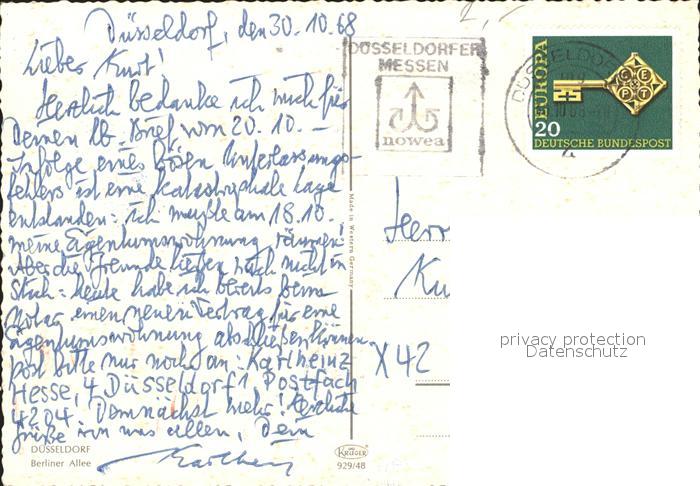 Düsseldorf, den 30.10.68
Lieber Kurt!
Herzlich bedanke ich mich für
Deinen lb. Brief vom 20.10. –
Infolge eines bösen Unterlassungs-
fehlers ist eine katastrophale Lage
entstanden: ich mußte am 18.10.
meine Eigentumswohnung räumen!
Aber die Freunde ließen mich nicht im
Stich: heute habe ich bereits beim
Notar einen neuen Vertrag für eine
Eigentumswohnung abschließen können.
Post bitte nur noch an: Karlheinz
Hesse, 4 Düsseldorf 1, Postfach
4204. Demnächst mehr! Herzliche
Grüße von uns allen, Dein
Karlheinz
DÜSSELDORF
Berliner Allee
Made in Western Germany
KRÜGER
929/48
2,-
DÜSSELDORFER
MESSEN
nowea
DÜSSELDORF
EUROPA
CEPT
20
DEUTSCHE BUNDESPOST
Herr
Ku
X 42
privacy protection
Datenschutz